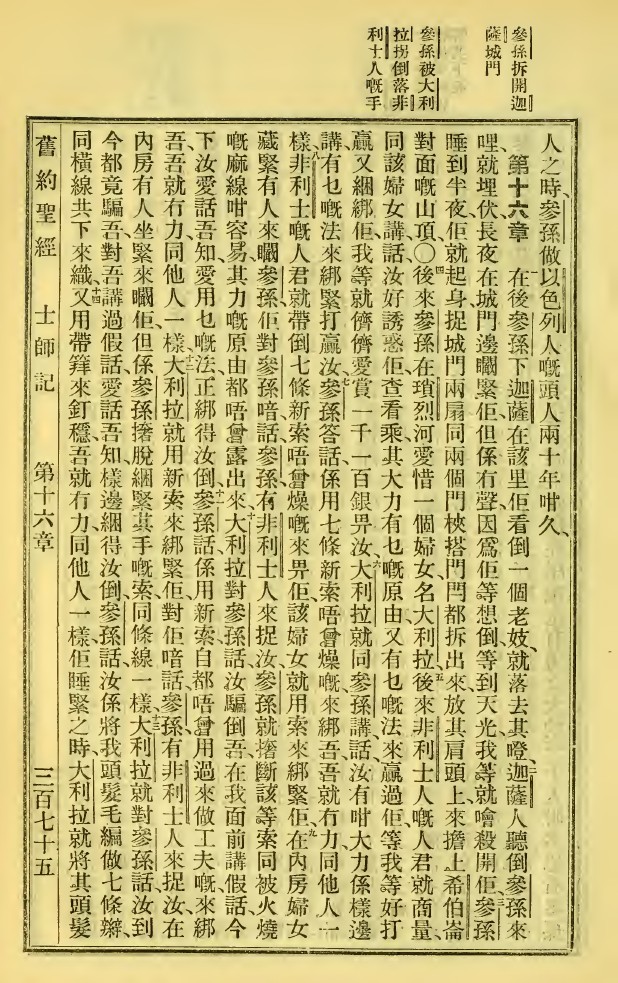 參孫拆開迦
薩城門
參孫被大利
拉拐倒落非
利士人嘅手
人之時、參孫做以色列人嘅頭人兩十年咁久、
第十六章 一在後參孫下迦薩在該里佢看倒一個老妓、就落去其嗌、二迦薩人聽倒參孫來
哩、就埋伏長夜在城門邊矋緊佢但係冇聲、因爲佢等想倒、等到天光我等就噲殺開佢、三參孫
睡到半夜佢就起身捉城門兩扇同兩個門梜搭門閂都拆出來、放其肩頭上來擔上希伯崙
對面嘅山頂、〇四後來參孫在瑣烈河愛惜一個婦女名大利拉、五後來非利士人嘅人君就商量、
同該婦女講話、汝好誘惑佢查看乘其大力有乜嘅原由、又有乜嘅法來贏過佢等、我等好打
贏又綑綁佢、我等就儕儕愛賞一千一百銀畀汝、六大利拉就同參孫講話、汝有咁大力係樣邊
講、有乜嘅法來綁緊打贏汝、七參孫答話、係用七條新索唔曾燥嘅來綁吾、吾就冇力同他人一
樣、八非利士嘅人君就帶倒七條新索唔曾燥嘅來畀佢、該婦女就用索來綁緊佢、九在內房婦女
藏緊有人來矋參孫、佢對參孫喑話、參孫有非利士人來捉汝、參孫就撦斷該等索同被火燒
嘅麻線咁容易、其力嘅原由都唔曾露出來、十大利拉對參孫話、汝騙倒吾、在我面前講假話、今
下汝愛話吾知愛用乜嘅法正綁得汝倒、十一參孫話、係用新索自都唔曾用過來做工夫嘅來綁
吾、吾就冇力同他人一樣、十二大利拉就用新索來綁緊佢、對佢喑話、參孫有非利士人來捉汝、在
內房有人坐緊來矋佢、但係參孫撦脫綑緊其手嘅索同條線一樣、十三大利拉就對參孫話、汝到
今都竟騙吾、對吾講過假話、愛話吾知樣邊綑得汝倒、參孫話、汝係將我頭髮毛編做七條辮、
同橫線共下來織、十四又用帶篺來釘穩、吾就冇力同他人一樣、佢睡緊之時、大利拉就將其頭髮
舊約聖經 士師記 第十六章 三百七十五